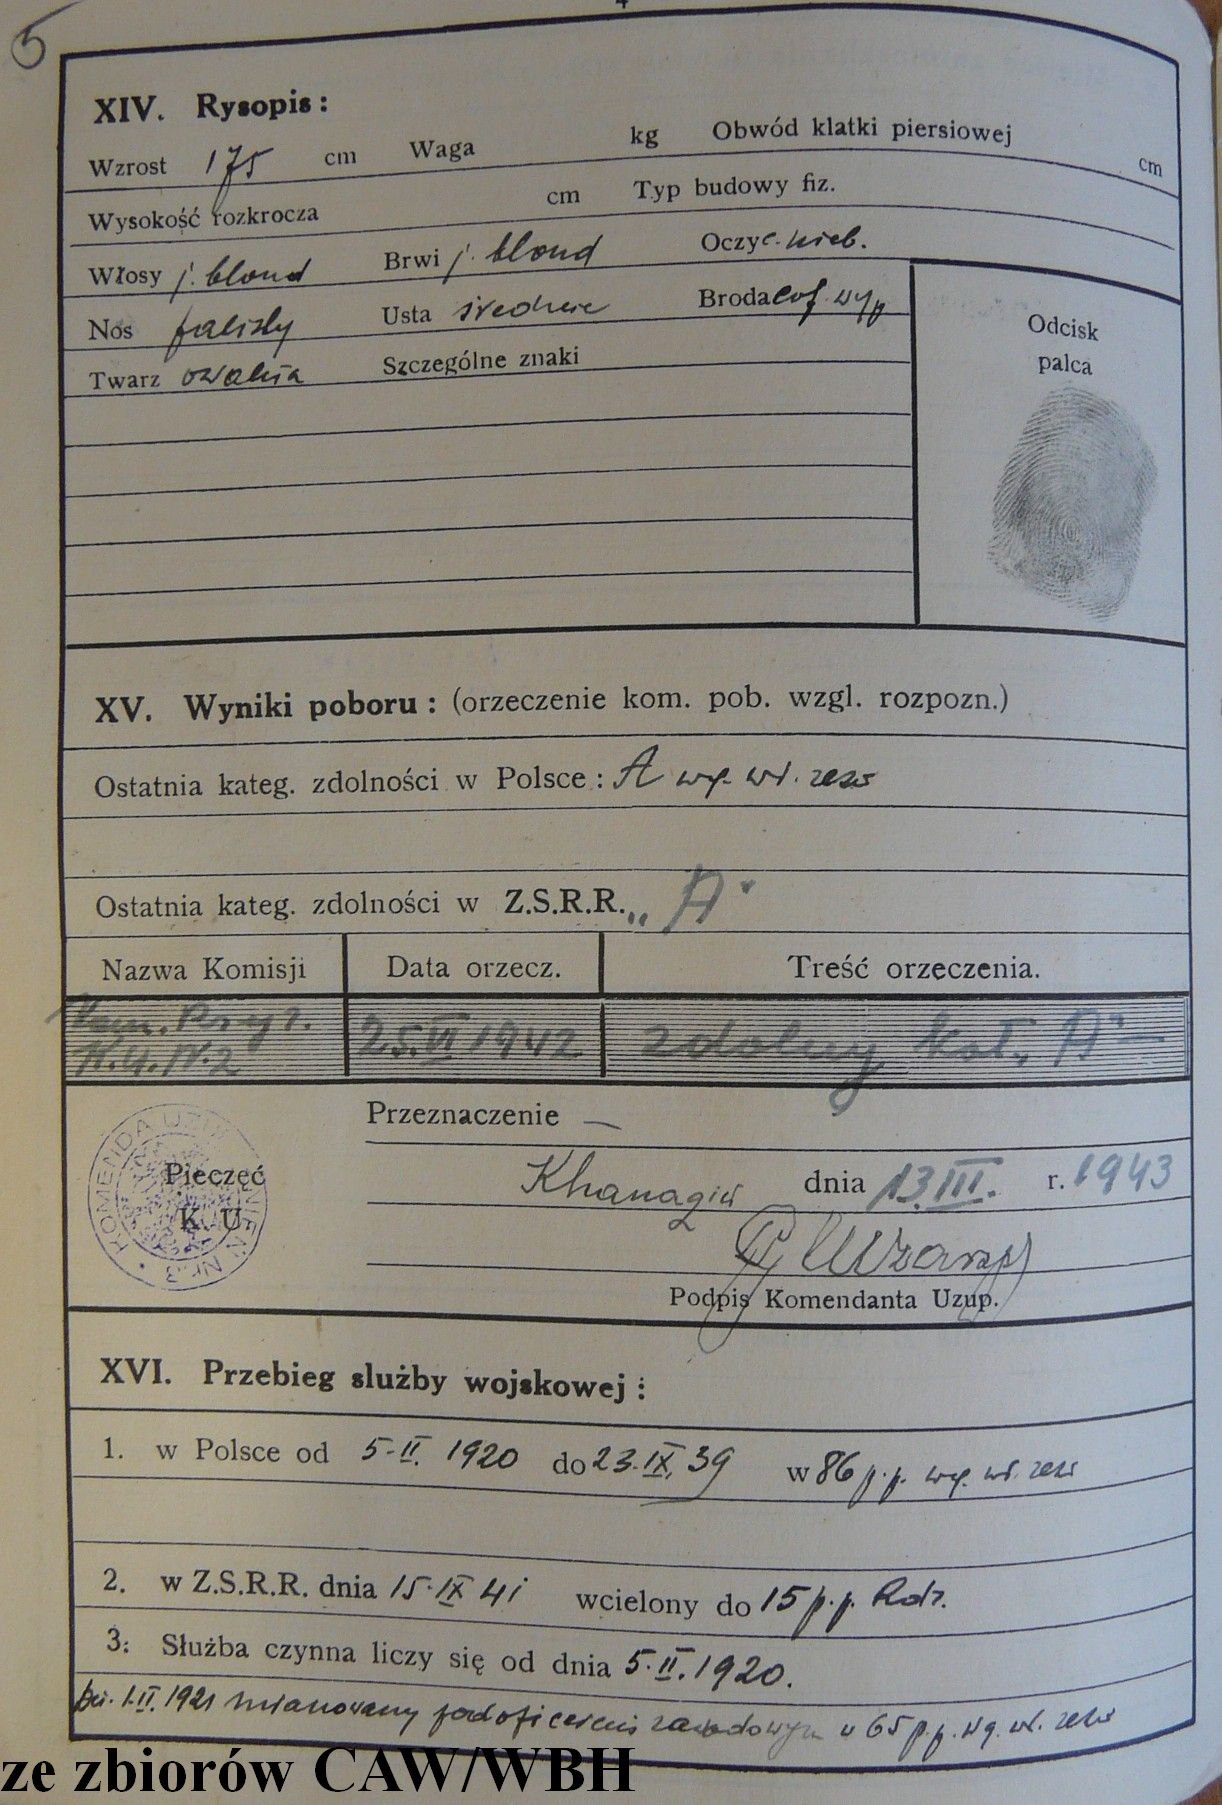 5
4
XIV. Rysopis:
Wzrost 175 cm Waga kg Obwód klatki piersiowej cm
Wysokość rozkrocza cm Typ budowy fiz.
Włosy j. blond Brwi j. blond Oczy c. nieb.
Nos falisty Usta średnie Broda cof. wyp
Twarz owalna Szczególne znaki
Odcisk
palca
XV. Wyniki poboru: (orzeczenie kom. pob. wzgl. rozpozn.)
Ostatnia kateg. zdolności w Polsce: A wg. wł. zezn
Ostatnia kateg. zdolności w Z.S.R.R. „A"
Nazwa Komisji Data orzecz. Treść orzeczenia.
25.VI 1942 zdolny kat. A"—
Przeznaczenie —
KOMENDA UZUPEŁNIEŃ Nr.3
Pieczęć
K. U.
Khanaqin dnia 13.III. r. 1943
Podpis Komendanta Uzup.
XVI. Przebieg służby wojskowej:
1. w Polsce od 5-II. 1920 do 23.IX.39 w 86 p.p. wg. wł. zezn
2. w Z.S.R.R. dnia 15.IX 41 wcielony do 15 p.p.
3. Służba czynna liczy się od dnia 5.II.1920.
dn. 1.II. 1921 mianowany podoficerem zawodowym w 65 p.p. wg. wł. zezn
ze zbiorów CAW/WBH